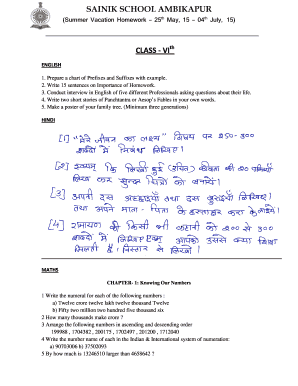 SAINIK SCHOOL AMBIKAPUR
(Summer Vacation Homework – 25th May, 15 – 04th July, 15)
CLASS - VIth
ENGLISH
1. Prepare a chart of Prefixes and Suffixes with example.
2. Write 15 sentences on Importance of Homework.
3. Conduct interview in English of five different Professionals asking questions about their life.
4. Write two short stories of Panchtantra or Aesop's Fables in your own words.
5. Make a poster of your family tree. (Minimum three generations)
HINDI
[1] "मेरे जीवन का लक्ष्य" विषय पर 250-300
शब्दों में निबंध लिखिए।
[2] कि किसी हुई कविता की 20 पंक्तियाँ
लिख कर सुन्दर चित्रों को बनायें।
[3] अपनी दस अच्छाइयाँ तथा दस बुराइयाँ लिखिए।
तथा अपने माता - पिता के हस्ताक्षर करा के लाईये।
[4] रामायण की किसी भी कहानी को 200 से 300
शब्दों में लिखिए एवम् आपको उससे क्या शिक्षा
मिलती है। विस्तार से लिखो।
MATHS
CHAPTER- 1: Knowing Our Numbers
1 Write the numeral for each of the following numbers :
a) Twelve crore twelve lakh twelve thousand Twelve
b) Fifty two million two hundred five thousand six
2 How many thousands make crore ?
3 Arrange the following numbers in ascending and descending order
199988 , 1704382, 200175 , 1702497 , 201200 , 1712040
4 Write the number name of each in the Indian & International system of numeration:
a) 90703006 b) 37502093
5 By how much is 13246510 larger than 4658642 ?